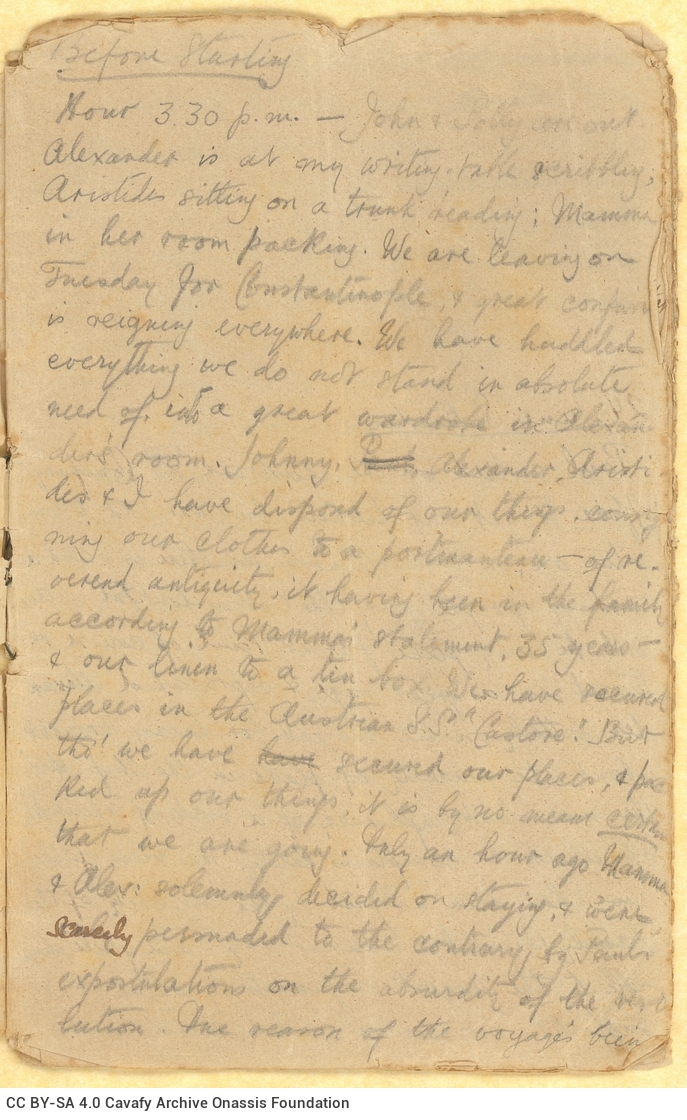 Before Starting
Hour 3.30 p.m. — John & Polly are out
Alexander is at my writing-table scribbling;
Aristides sitting on a trunk reading; Mamma
in her room packing. We are leaving on
Tuesday for Constantinople, & great confusi
is reigning everywhere. We have huddled
everything we do not stand in absolute
need of, into a great wardrobe in Alexan
ders' room. Johnny, Alexander, Aristi-
des & I have disposed of our things, consig
ning our clothes to a portmanteau — of re-
verend antiquity, it having been in the family
according to Mamma's statement, 35 years —
& our linen to a tin box. We have secured
places in the Austrian S.S. "Castore". But
tho' we have have secured our places, & pa-
ked up our things, it is by no means certain
that we are going. Only an hour ago Mamma
& Alex: solemnly decided on staying, & were
scarcely persuaded to the contrary, by Paul's
expostulations on the absurdity of the reso
lution. The reason of the voyage's been
CC BY-SA 4.0 Cavafy Archive Onassis Foundation